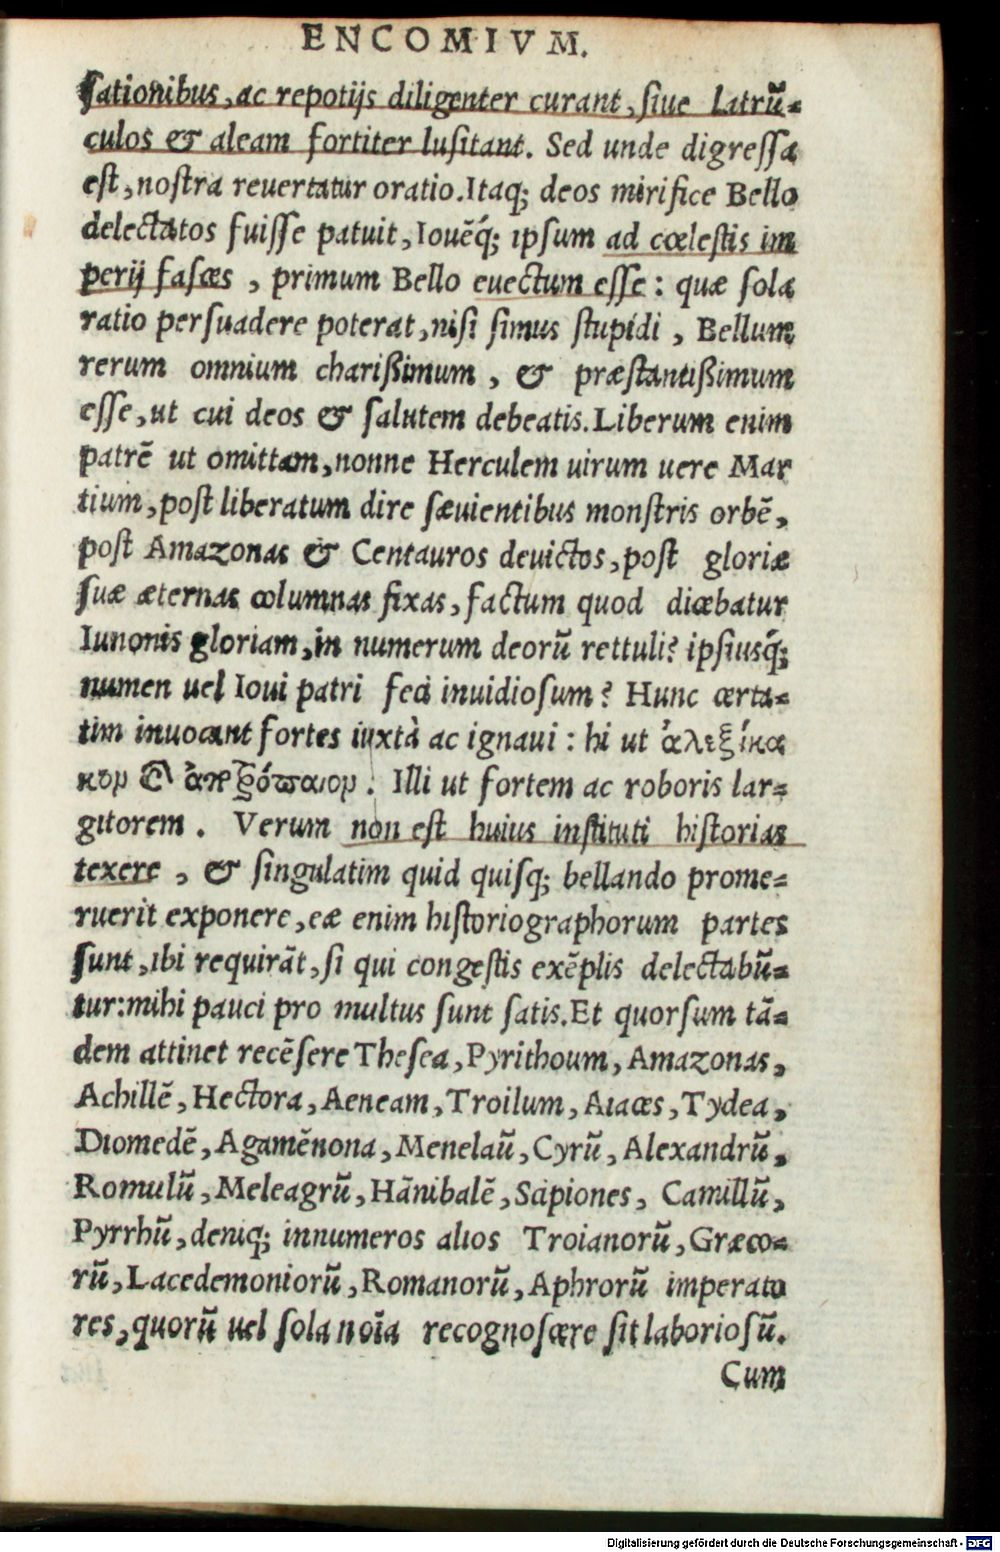 ENCOMIVM.
sationibus, ac repotijs diligenter curant, siue Latrũ-
culos & aleam fortiter lusitant. Sed unde digressa
est, nostra reuertatur oratio. Itaq; deos mirifice Bello
delectatos fuisse patuit, Iouẽq́; ipsum ad cœlestis im
perij fasces, primum Bello euectum esse: quæ sola
ratio persuadere poterat, nisi simus stupidi, Bellum
rerum omnium charißimum, & præstantißimum
esse, ut cui deos & salutem debeatis. Liberum enim
patrẽ ut omittam, nonne Herculem uirum uere Mar
tium, post liberatum dire sæuientibus monstris orbẽ,
post Amazonas & Centauros deuictos, post gloriæ
suæ æternas columnas fixas, factum quod dicebatur
Iunonis gloriam, in numerum deorũ rettuli? ipsiusq́;
numen uel Ioui patri feci inuidiosum? Hunc certa-
tim inuocant fortes iuxtà ac ignaui: hi ut ἀλεξίκα
κον & ἀποτρόπαιον: Illi ut fortem ac roboris lar-
gitorem. Verum non est huius instituti historias
texere, & singulatim quid quisq; bellando prome-
ruerit exponere, eæ enim historiographorum partes
sunt, ibi requirãt, si qui congestis exẽplis delectabũ-
tur: mihi pauci pro multus sunt satis. Et quorsum tã-
dem attinet recẽsere Thesea, Pyrithoum, Amazonas,
Achillẽ, Hectora, Aeneam, Troilum, Aiaces, Tydea,
Diomedẽ, Agamẽnona, Menelaũ, Cyrũ, Alexandrũ,
Romulũ, Meleagrũ, Hãnibalẽ, Scipiones, Camillũ,
Pyrrhũ, deniq; innumeros alios Troianorũ, Græco-
rũ, Lacedemoniorũ, Romanorũ, Aphrorũ imperato
res, quorũ uel sola noĩa recognoscere sit laboriosũ.
Cum
Digitalisierung gefördert durch die Deutsche Forschungsgemeinschaft - DFG